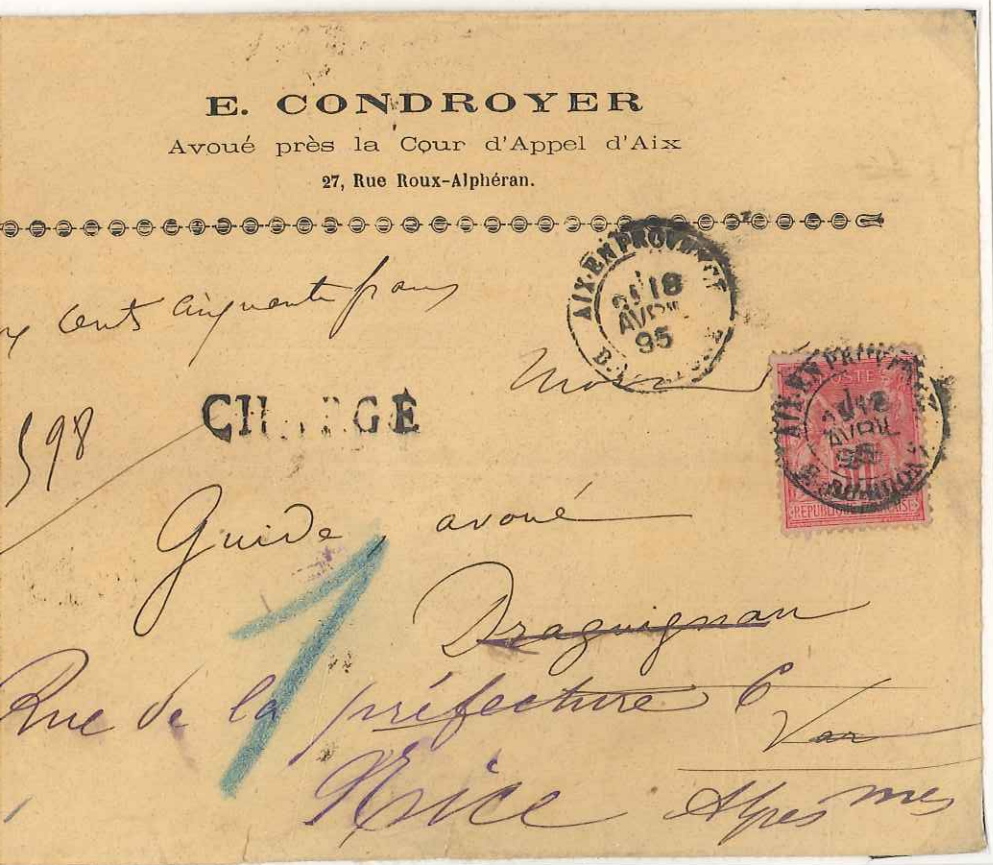 E. CONDROYER
Avoué près la Cour d'Appel d'Aix
27, Rue Roux-Alphéran.
cents cinquante francs
AIX-EN-PROVENCE
18
AVRIL
95
CHARGÉ
598
POSTE
AIX-EN-PROVENCE
AVRIL
95
RÉPUBLIQUE FRANÇAISE
Guide avoué
Draguignan
Rue de la préfecture 6
Var
Nice Alpes mes
1